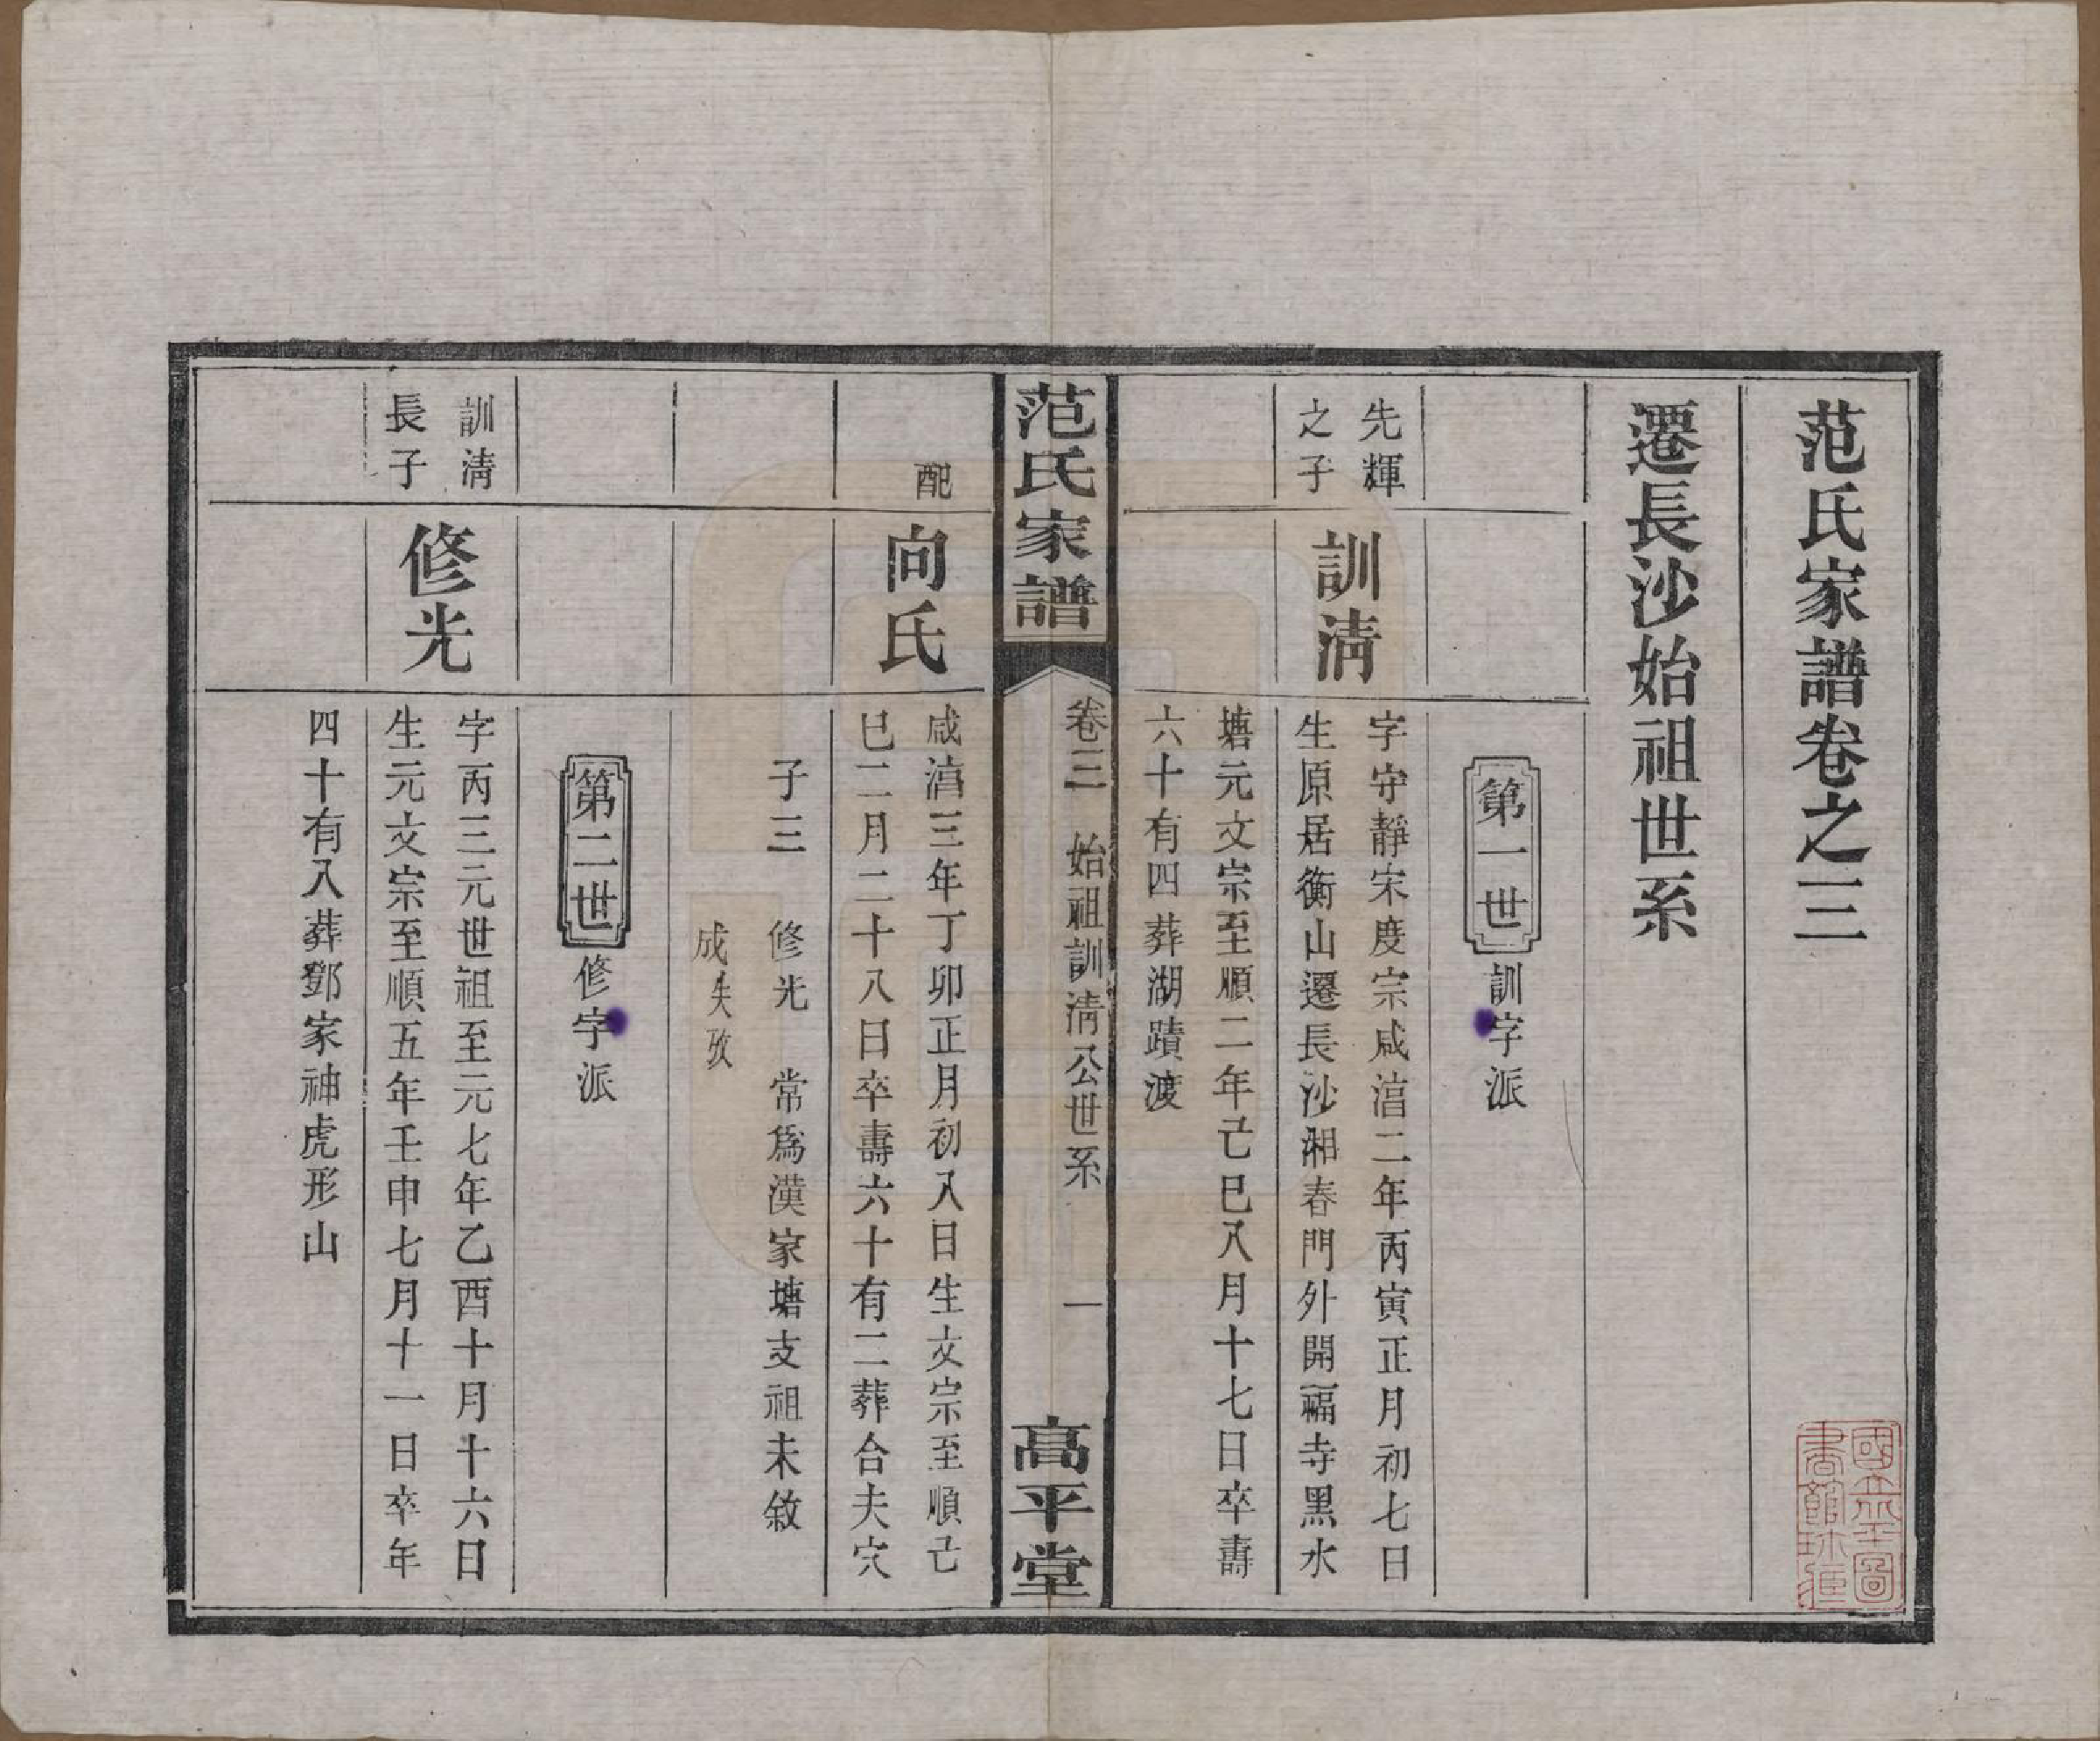 范氏家譜卷之三
遷長沙始祖世系
第一世 訓字派
先輝
之子
訓淸
字守靜宋度宗咸湻二年丙寅正月初七日
生原居衡山遷長沙湘春門外開福寺黑水
塘元文宗至順二年己巳八月十七日卒壽
六十有四葬湖蹟渡
范氏家譜
卷三 始祖訓淸公世系 一
高平堂
配
向氏
咸湻三年丁卯正月初八日生文宗至順己
巳二月二十八日卒壽六十有二葬合夫穴
子三 修光 常爲漢家塘支祖未敘
成失攷
第二世 修字派
訓淸
長子
修光
字丙三元世祖至元七年乙酉十月十六日
生元文宗至順五年壬申七月十一日卒年
四十有八葬鄧家神虎形山
國立北平圖
書館珍藏